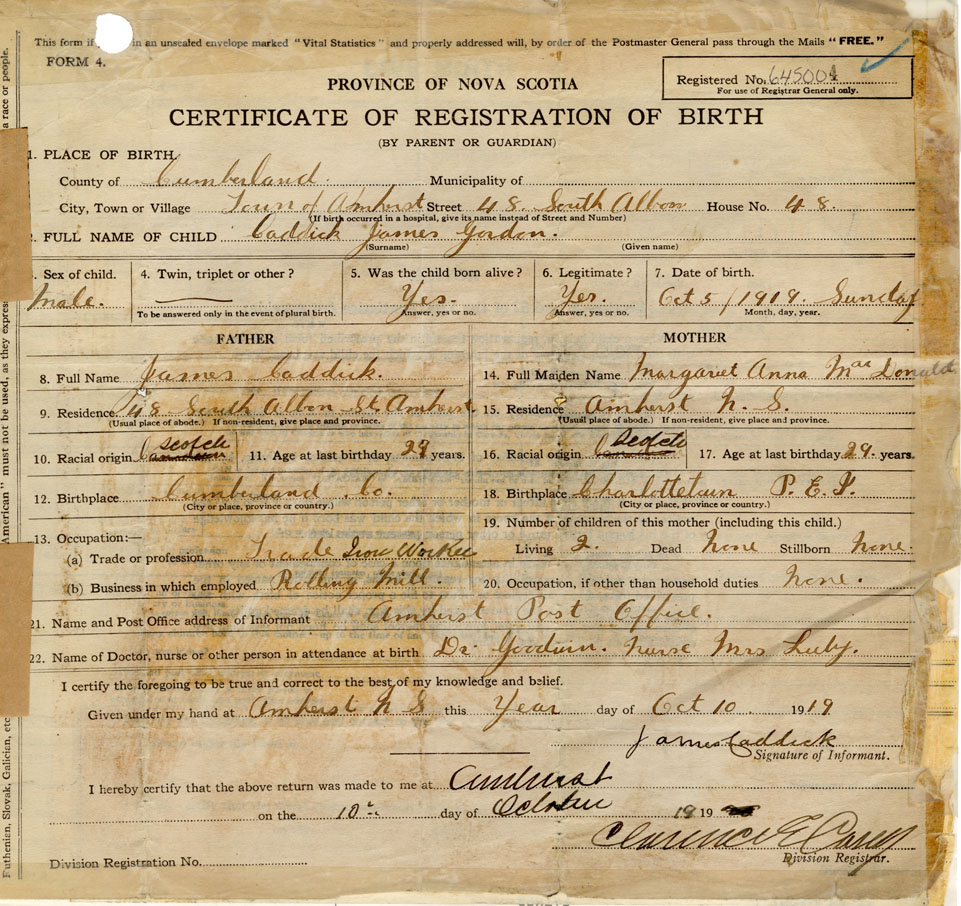 This form if in an unsealed envelope marked "Vital Statistics" and properly addressed will, by order of the Postmaster General pass through the Mails "FREE."
FORM 4.
Registered No. 645004
For use of Registrar General only.
PROVINCE OF NOVA SCOTIA
CERTIFICATE OF REGISTRATION OF BIRTH
(BY PARENT OR GUARDIAN)
1. PLACE OF BIRTH.
County of Cumberland. Municipality of
City, Town or Village Town of Amherst Street 48 South Albon House No. 48.
(If birth occurred in a hospital, give its name instead of Street and Number)
2. FULL NAME OF CHILD Caddick James Gordon.
(Surname) (Given name)
3. Sex of child. 4. Twin, triplet or other? 5. Was the child born alive? 6. Legitimate? 7. Date of birth.
Male. Yes. Yes. Oct 5/1919. Sunday
To be answered only in the event of plural birth. Answer, yes or no. Answer, yes or no. Month, day, year.
FATHER
8. Full Name James Caddick.
9. Residence 48 South Albon St. Amherst
(Usual place of abode.) If non-resident, give place and province.
10. Racial origin Scotch 11. Age at last birthday 29 years.
12. Birthplace Cumberland Co.
(City or place, province or country.)
13. Occupation:—
(a) Trade or profession Trade Iron Worker
(b) Business in which employed Rolling Mill.
MOTHER
14. Full Maiden Name Margaret Anna Mac Donald
15. Residence Amherst N. S.
(Usual place of abode.) If non-resident, give place and province.
16. Racial origin Scotch 17. Age at last birthday 29. years.
18. Birthplace Charlottetown P. E. I.
(City or place, province or country.)
19. Number of children of this mother (including this child.)
Living 2. Dead None Stillborn None.
20. Occupation, if other than household duties None.
21. Name and Post Office address of Informant Amherst Post Office.
22. Name of Doctor, nurse or other person in attendance at birth Dr. Goodwin. Nurse Mrs Luby.
I certify the foregoing to be true and correct to the best of my knowledge and belief.
Given under my hand at Amherst N S this Year day of Oct 10. 1919
James Caddick
Signature of Informant.
I hereby certify that the above return was made to me at Amherst
on the 10th day of October 1919
Clarence E Casey
Division Registrar.
Division Registration No.
American" must not be used, as they express a race or people.
Ruthenian, Slovak, Galician, etc